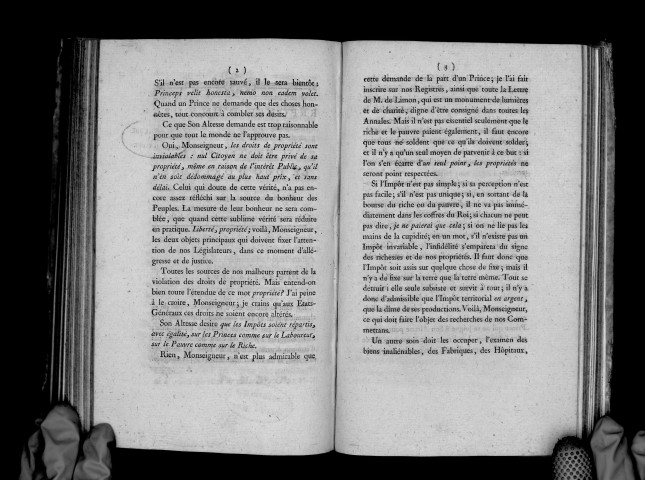 ( 2 )
S'il n'est pas encore sauvé, il le sera bientôt :
Princeps velit honesta, nemo non eadem volet.
Quand un Prince ne demande que des choses hon-
nêtes, tout concourt à combler ses desirs.
Ce que Son Altesse demande est trop raisonnable
pour que tout le monde ne l'approuve pas.
Oui, Monseigneur, les droits de propriété sont
inviolables : nul Citoyen ne doit être privé de sa
propriété, même en raison de l'intérêt Public, qu'il
n'en soit dédommagé au plus haut prix, et sans
délai. Celui qui doute de cette vérité, n'a pas en-
core assez réfléchi sur la source du bonheur des
Peuples. La mesure de leur bonheur ne sera com-
blée, que quand cette sublime vérité sera réduite
en pratique. Liberté, propriété; voilà, Monseigneur,
les deux objets principaux qui doivent fixer l'atten-
tion de nos Législateurs, dans ce moment d'allé-
gresse et de justice.
Toutes les sources de nos malheurs partent de la
violation des droits de propriété. Mais entend-on
bien toute l'étendue de ce mot propriété? J'ai peine
à le croire, Monseigneur; je crains qu'aux Etats-
Généraux ces droits ne soient encore altérés.
Son Altesse desire que les Impôts soient répartis,
avec égalité, sur les Princes comme sur le Laboureur,
sur le Pauvre comme sur le Riche.
Rien, Monseigneur, n'est plus admirable que
( 3 )
cette démande de la part d'un Prince; je l'ai fait
inscrire sur nos Registres, ainsi que toute la Lettre
de M. de Limon, qui est un monument de lumières
et de charité, digne d'être consigné dans toutes les
Annales. Mais il n'est pas essentiel seulement que le
riche et le pauvre paient également, il faut encore
que tous ne soldent que ce qu'ils doivent solder;
et il n'y a qu'un seul moyen de parvenir à ce but : si
l'on s'en écarte d'un seul point, les propriétés ne
seront point respectées.
Si l'Impôt n'est pas simple; si sa perception n'est
pas facile; s'il n'est pas unique; si, en sortant de la
bourse du riche ou du pauvre, il ne va pas immé-
diatement dans les coffres du Roi; si chacun ne peut
pas dire, je ne paierai que cela; si on ne lie pas les
mains de la cupidité; en un mot, s'il n'existe pas un
Impôt invariable, l'infidélité s'emparera du signe
des richesses et de nos propriétés. Il faut donc que
l'Impôt soit assis sur quelque chose de fixe; mais il
n'y a de fixe sur la terre que la terre même. Tout se
détruit : elle seule subsiste et survit à tout; il n'y a
donc d'admissible que l'Impôt territorial en argent,
que la dîme de ses productions. Voilà, Monseigneur,
ce qui doit faire l'objet des recherches de nos Com-
mettans.
Un autre soin doit les occuper, l'examen des
biens inaliénables, des Fabriques, des Hôpitaux,